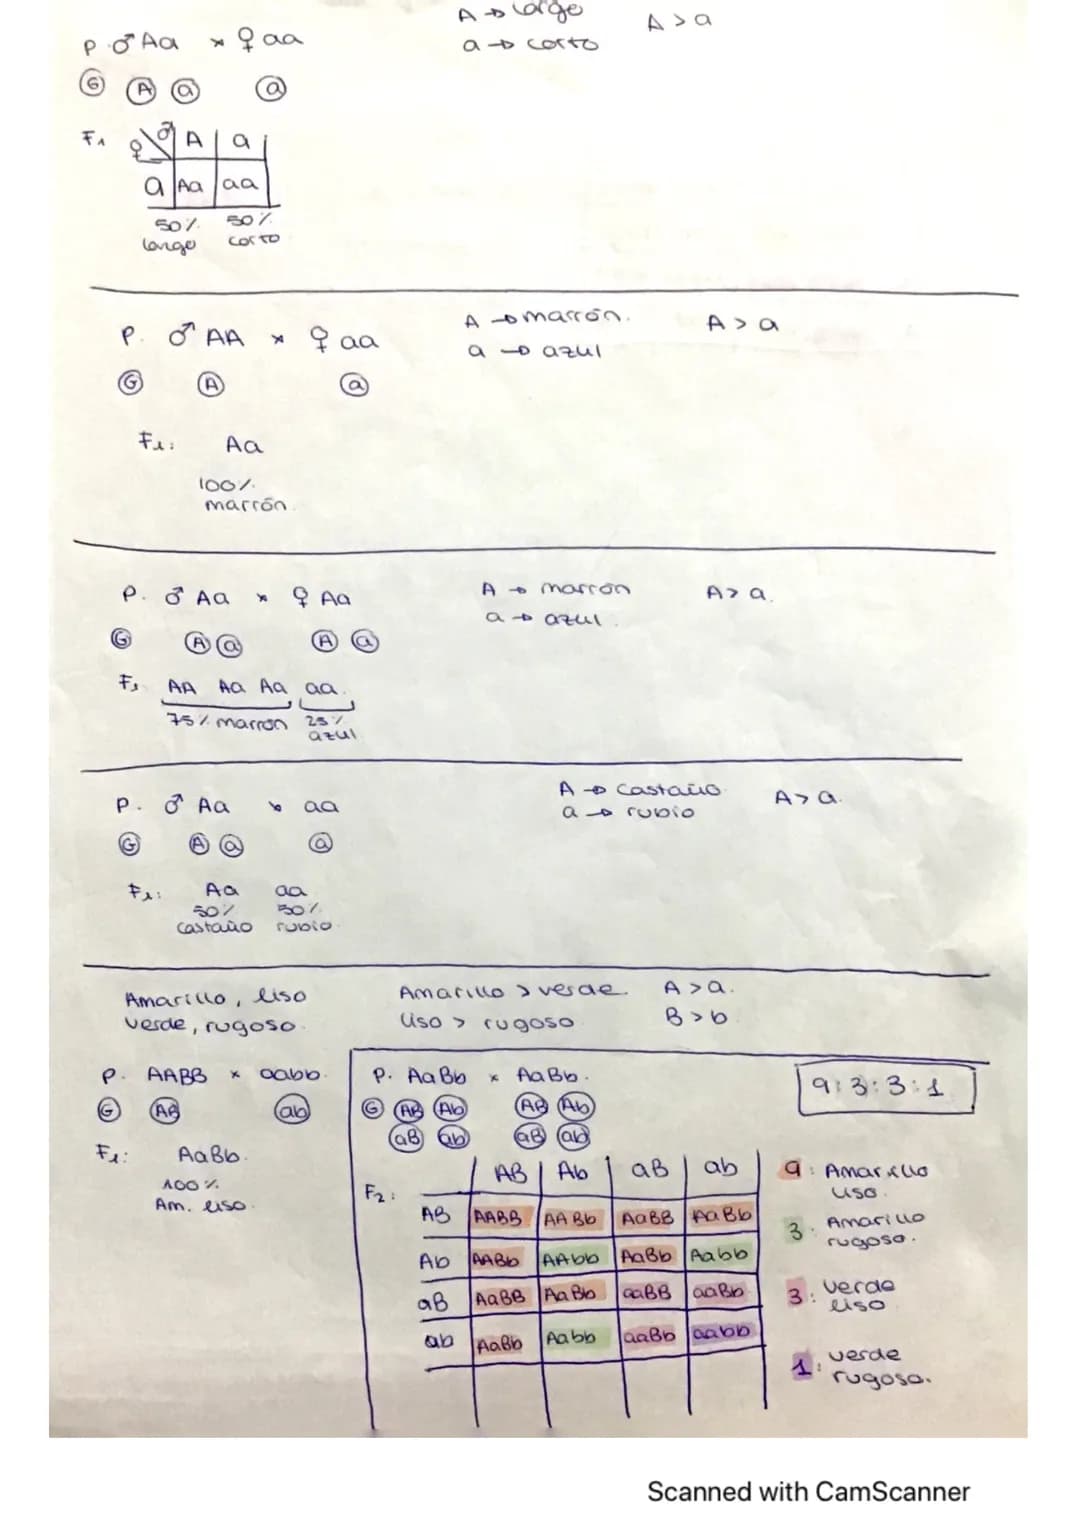 A → largo
P. ♂ Aa x ♀ aa A > a
a → corto
G A a a
F1 ♀ ♂ A a
a Aa aa
50% 50%
largo corto
P. ♂ AA x ♀ aa A → marrón. A > a
a → azul
G A a
F1: Aa
100%
marrón.
P. ♂ Aa x ♀ Aa A → marrón A > a.
a → azul.
G A a A a
F1 AA Aa Aa aa.
75% marrón 25%
azul
P. ♂ Aa x aa A → castaño A > a.
a → rubio
G A a a
F1: Aa aa
50% 50%
castaño rubio.
Amarillo, liso Amarillo > verde. A > a.
verde, rugoso. liso > rugoso B > b
P. AABB x aabb.
G AB ab
F1: AaBb.
100%
Am. liso.
P. AaBb x AaBb.
G AB Ab AB Ab
aB ab aB ab
F2:
AB Ab aB ab
AB AABB AABb AaBB AaBb
Ab AABb AAbb AaBb Aabb
aB AaBB AaBb aaBB aaBb
ab AaBb Aabb aaBb aabb
9:3:3:1
9: Amarillo
liso.
3: Amarillo
rugoso.
3: verde
liso
1: verde
rugoso.
Scanned with CamScanner